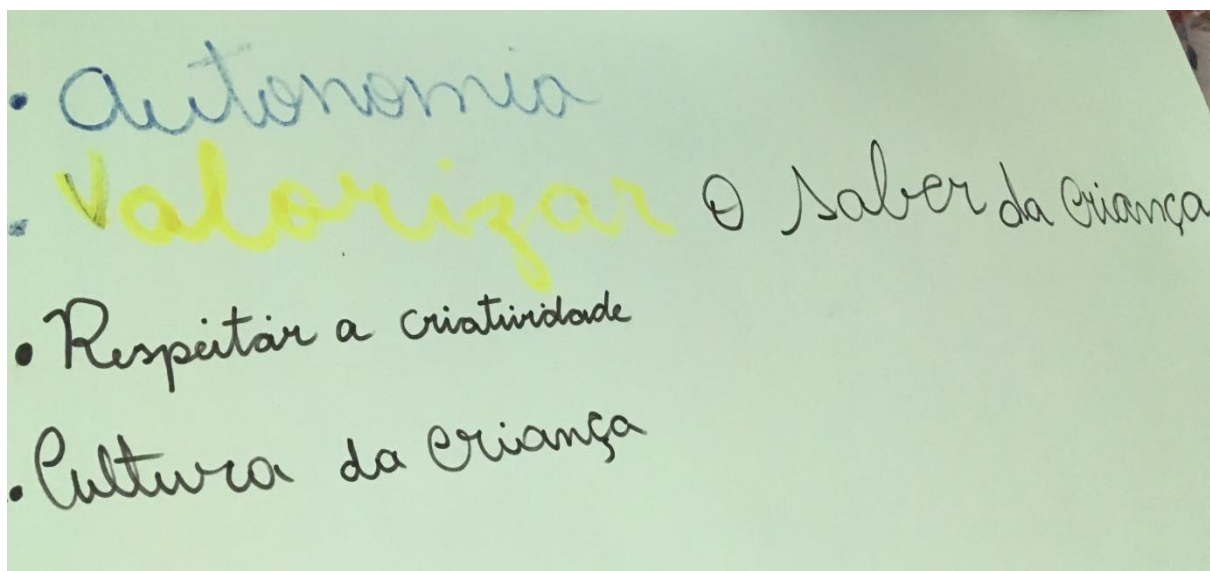 • Autonomia
• Valorizar O saber da criança
• Respeitar a criatividade
• Cultura da criança